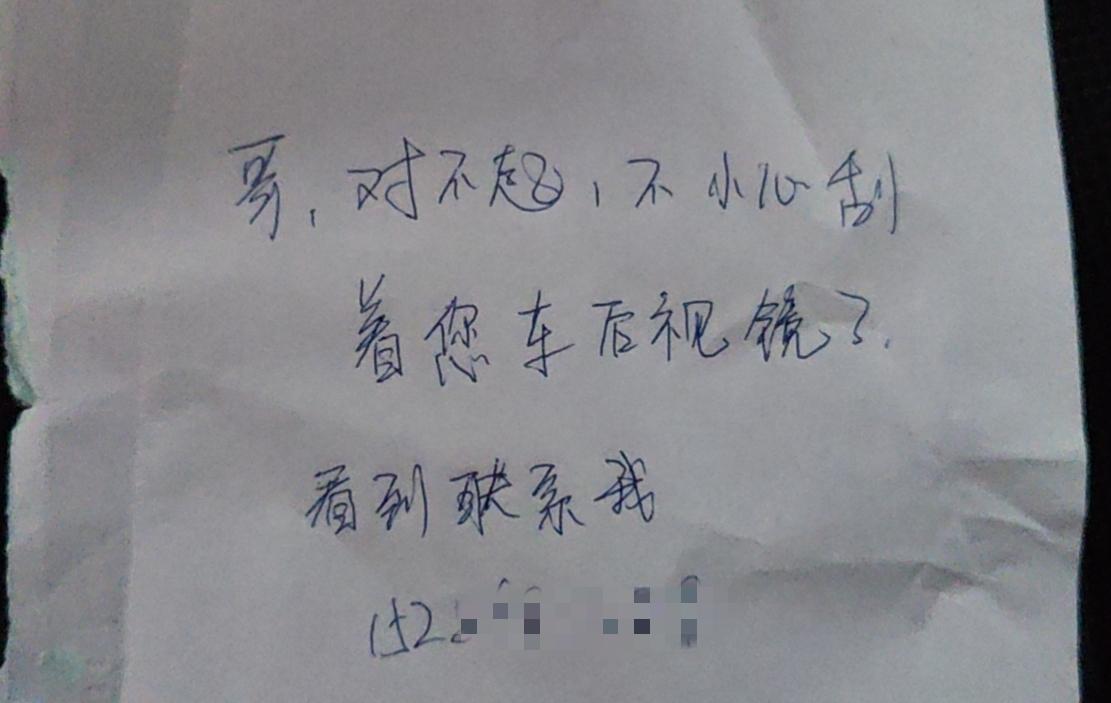 哥,对不起,不小心刮
着您车后视镜了.
看到联系我
152